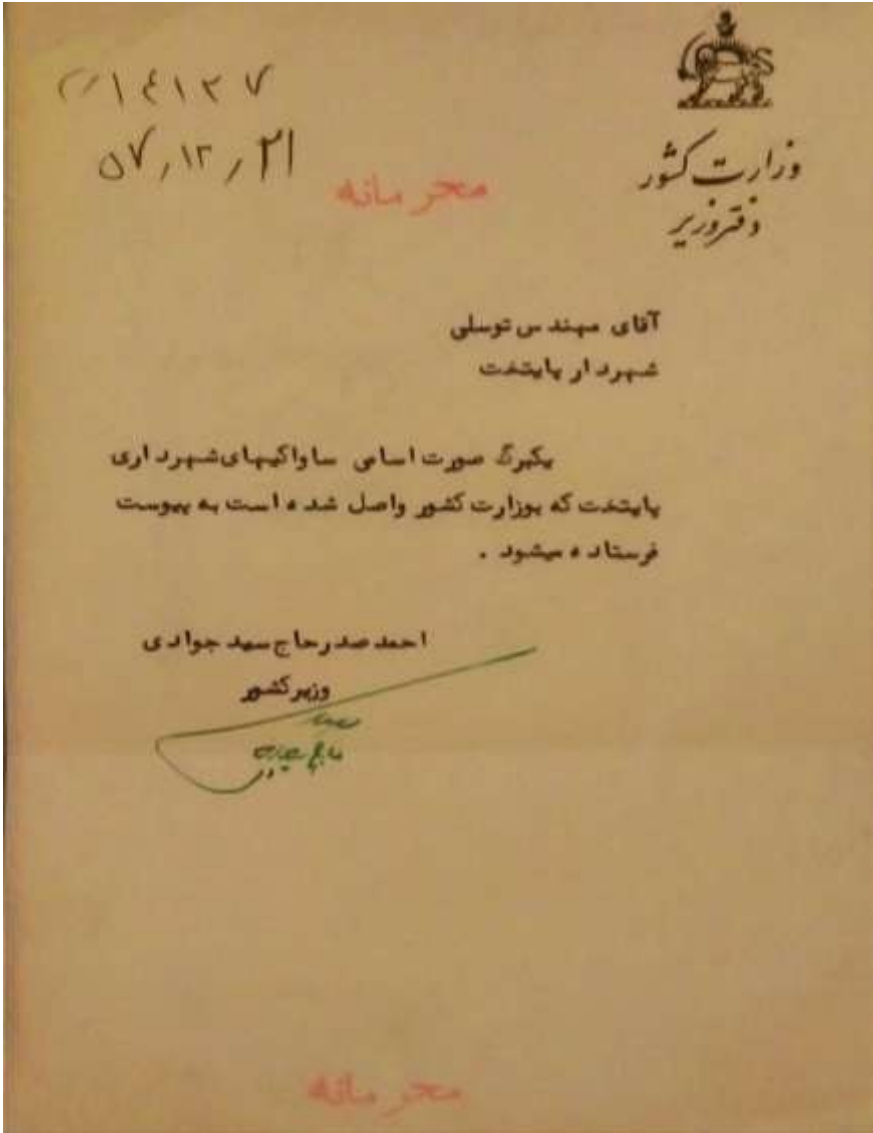 وزارت کشور
دفتر وزیر
۱۴۱۲۷
۵۷,۱۲,۲۱
محرمانه
آقای مهندس توسلی
شهردار پایتخت
یکبرگ صورت اسامی ساواکیهای شهرداری
پایتخت که بوزارت کشور واصل شده است به پیوست
فرستاده میشود .
احمد صدر حاج سید جوادی
وزیر کشور
محرمانه